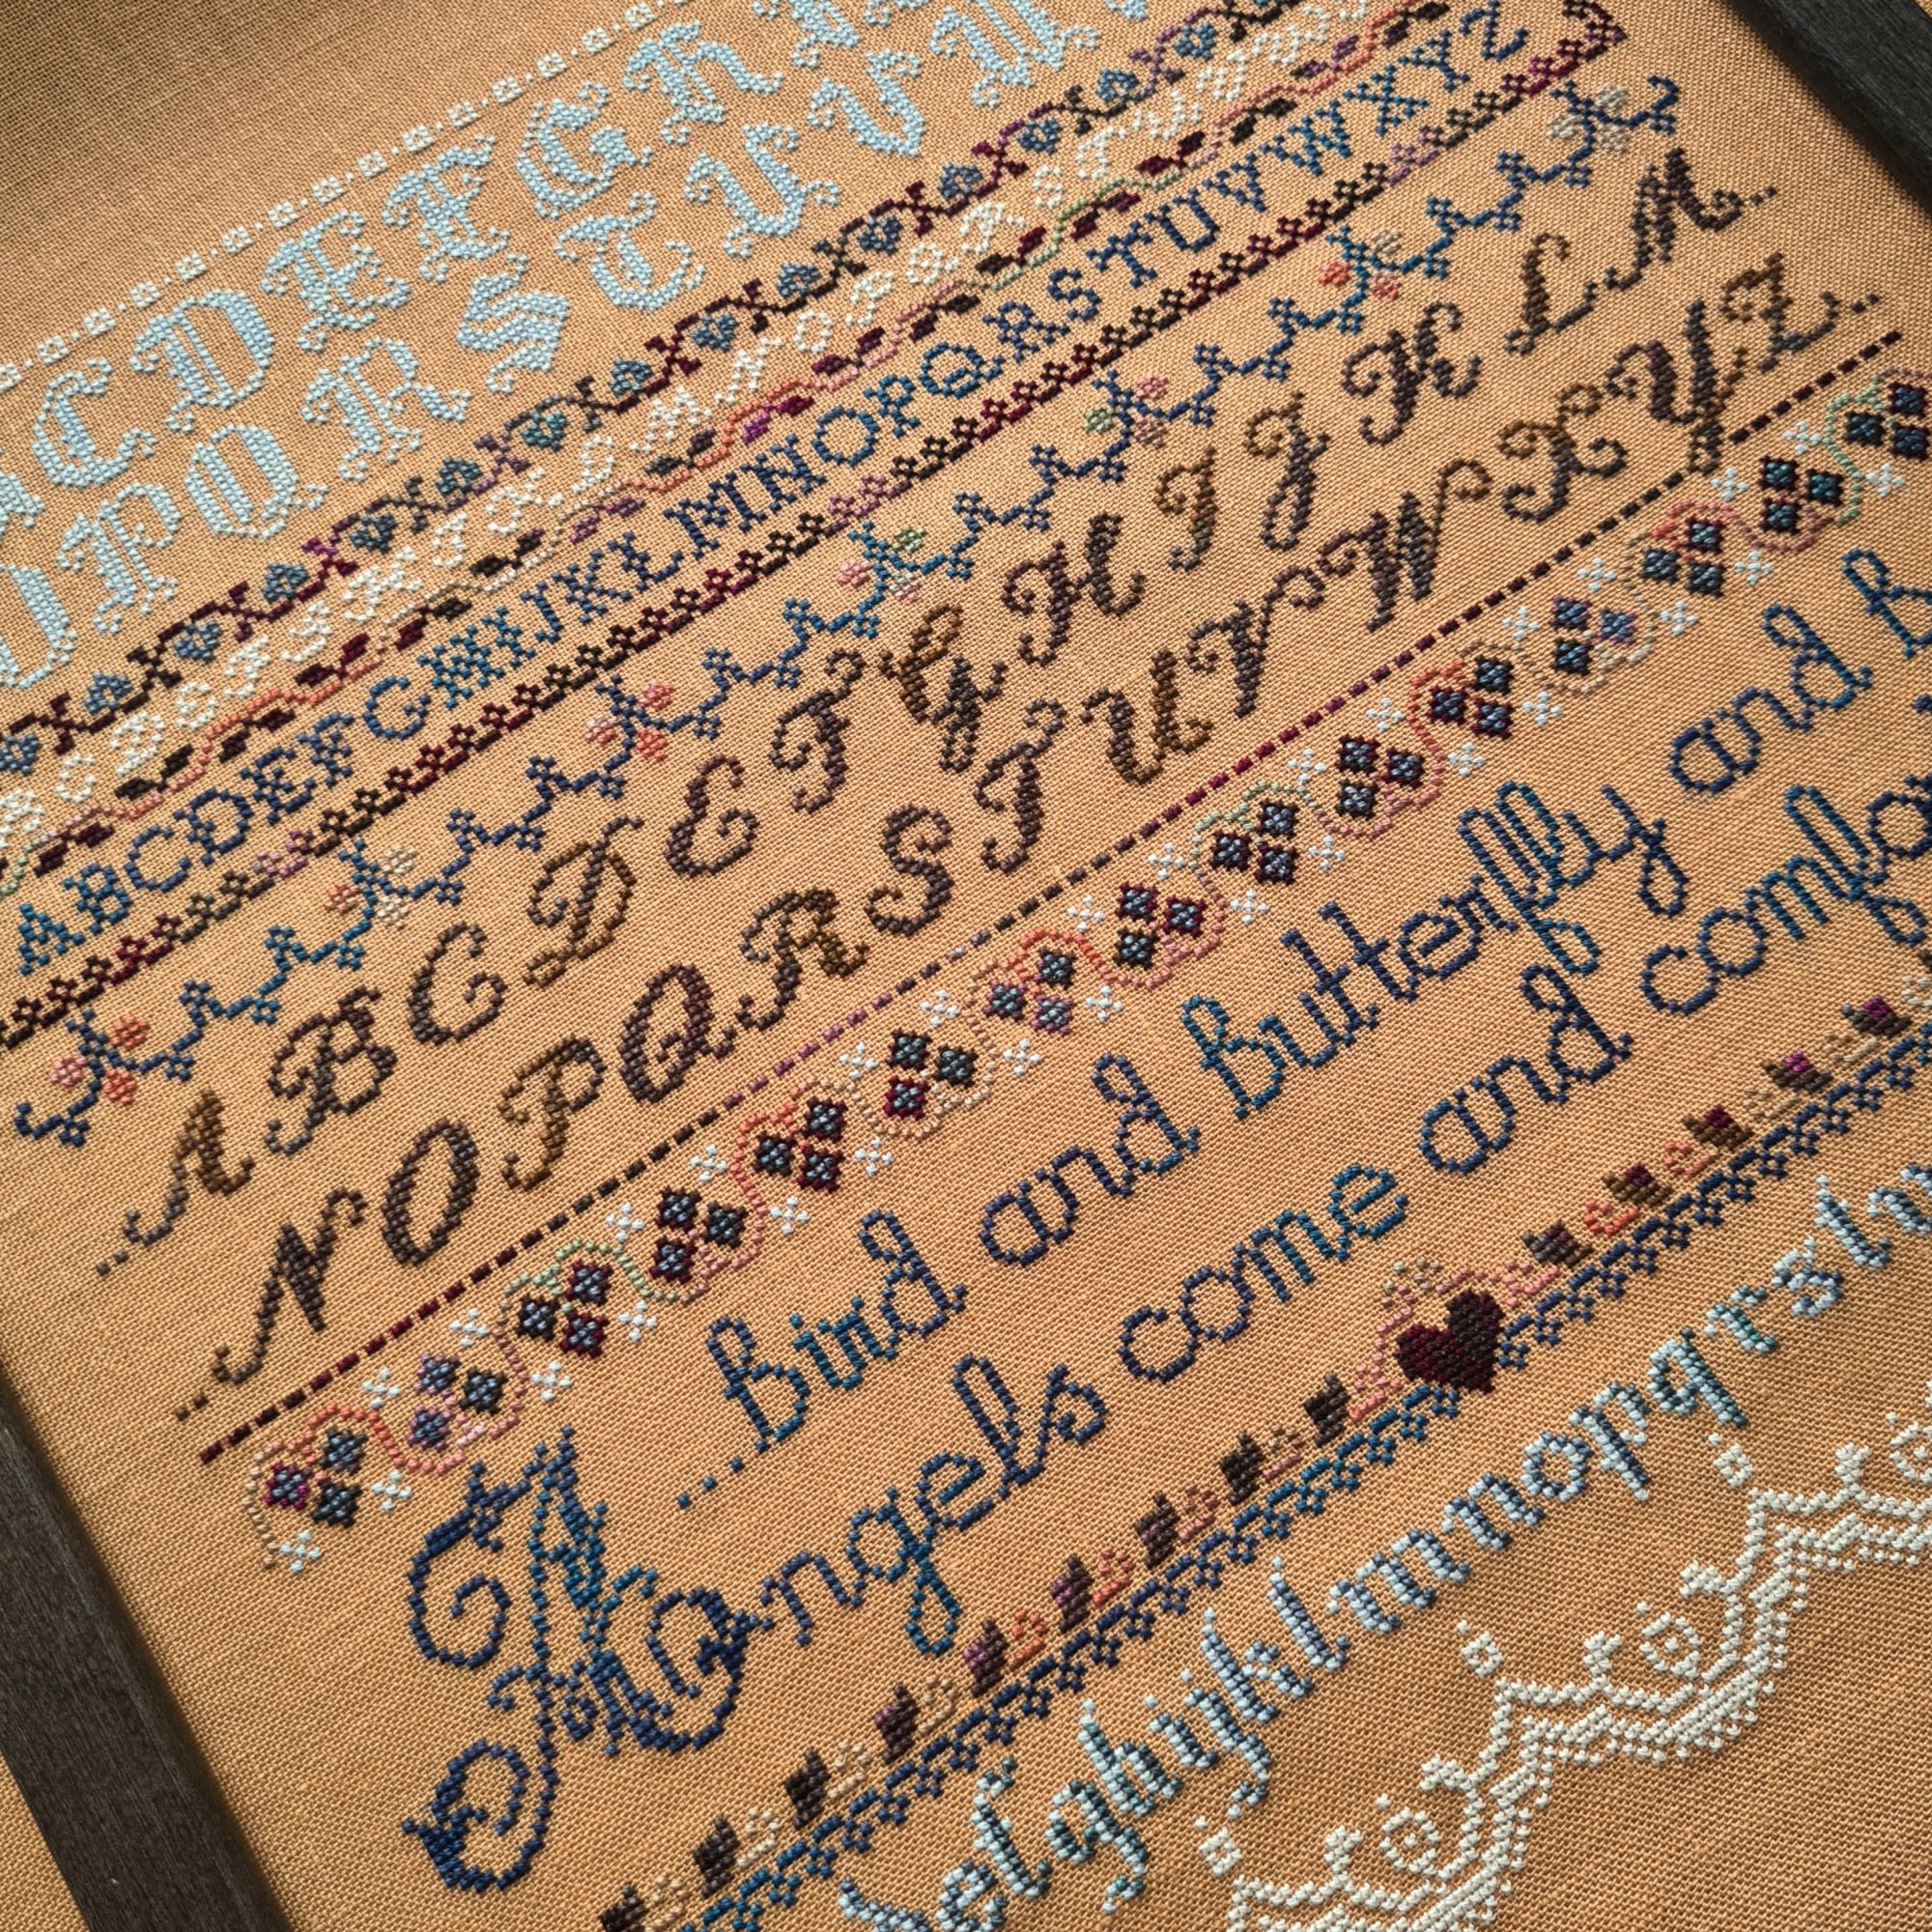 C D E F G H
P Q R S T U V W
C D E F G H I J K L M N O P Q R S
ABCDEFGHIJKLMNOPQRSTUVWXYZ
...A B C D E F G H I J K L M...
...N O P Q R S T U V W X Y Z...
...Bird and Butterfly and
Angels come and
efghijklmnopqrst